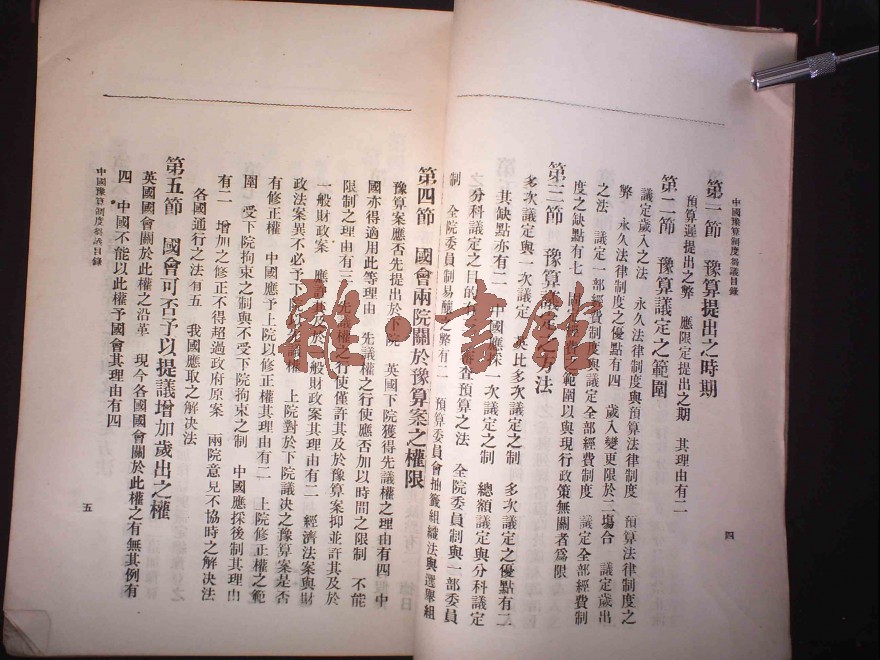 中國豫算制度芻議目錄
第一節　豫算提出之時期
預算遲提出之弊　應限定提出之期　其理由有二
第二節　豫算議定之範圍
議定歲入之法　永久法律制度與預算法律制度　預算法律制度之
弊　永久法律制度之優點有四　歲入變更限於二塲合　議定歲出
之法　議定一部經費制度與議定全部經費制度　議定全部經費制
度之缺點有七　範圍以與現行政策無關者爲限
第三節　豫算議定之方法
多次議定與一次議定　英比多次議定之制　多次議定之優點有二
其缺點亦有二　中國應採一次議定之制　總額議定與分科議定
分科議定之目的　審查預算之法　全院委員制與一部委員
制　全院委員制易釀之弊有二　預算委員會抽籤組織法與選舉組
四
第四節　國會兩院關於豫算案之權限
豫算案應否先提出於下院　英國下院獲得先議權之理由有四　中
國亦得適用此等理由　先議權之行使應否加以時間之限制　不能
限制之理由有三　先議權之行使僅許其及於豫算案抑並許其及於
一般財政案　應許其及於一般財政案其理由有二　經濟法案與財
政法案異不必予下院先議權　上院對於下院議決之豫算案是否
有修正權　中國應予上院以修正權其理由有二　上院修正權之範
圍　受下院拘束之制與不受下院拘束之制　中國應採後制其理由
有二　增加之修正不得超過政府原案　兩院意見不協時之解決法
各國通行之法有五　我國應取之解決法
第五節　國會可否予以提議增加歲出之權
英國國會關於此權之沿革　現今各國國會關於此權之有無其例有
四　中國不能以此權予國會其理由有四
中國豫算制度芻議目錄
五
雜·書館